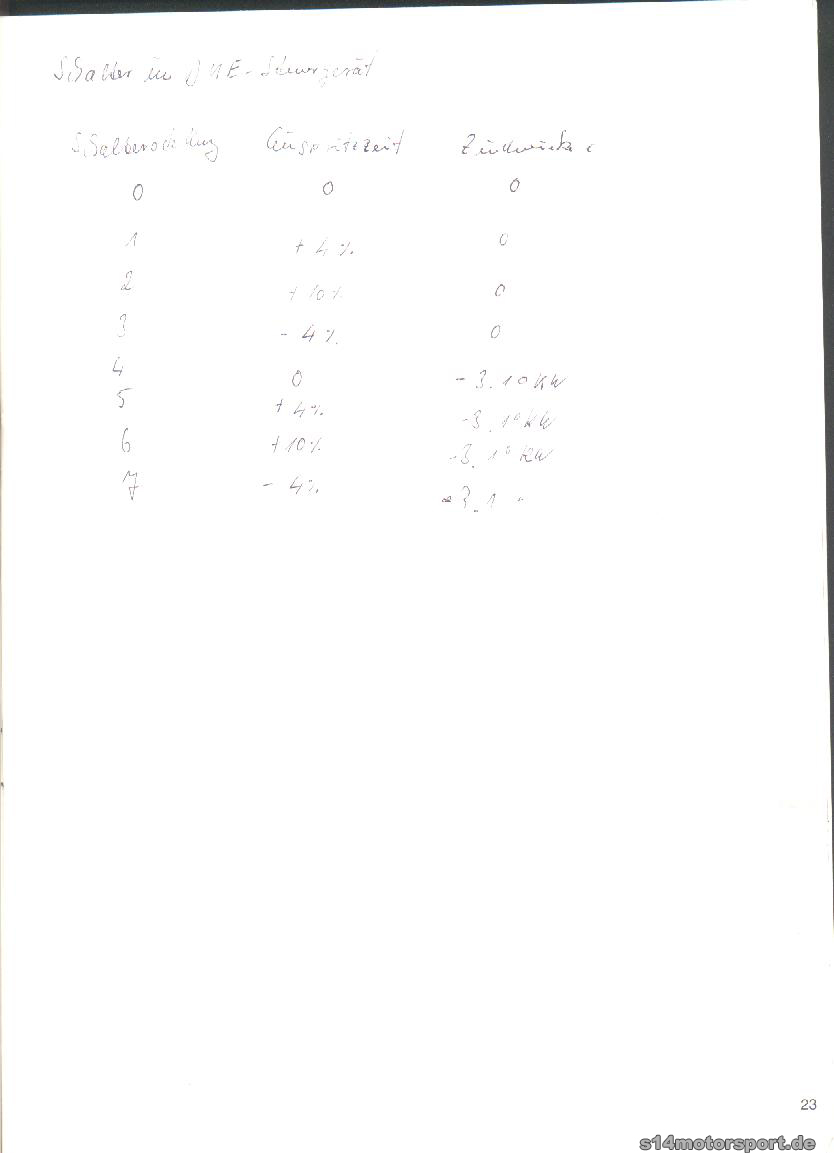 Schalter in DME-Steuergerät
Schalterstellung Einspritzzeit Zündwinkel
0 0 0
1 + 4 % 0
2 + 10 % 0
3 - 4 % 0
4 0 - 3.1° KW
5 + 4 % - 3.1° KW
6 + 10 % - 3.1° KW
7 - 4 % - 3.1 °
23
s14motorsport.de